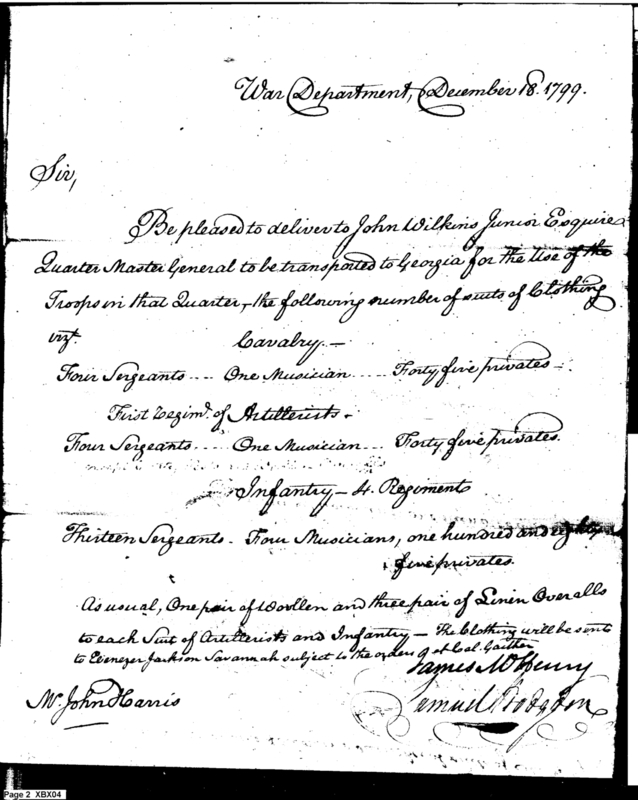 War Department, December 18. 1799.
Sir,
Be pleased to deliver to John Wilkins Junior Esquire
Quarter Master General to be transported to Georgia for the Use of the
Troops in that Quarter, the following number of suits of Clothing
vizt.
Cavalry. —
Four Sergeants .... One Musician .... Forty five privates —.
First Regimt. of Artillerists.
Four Sergeants .... One Musician .... Forty five privates.
Infantry — 4. Regiment
Thirteen Sergeants. Four Musicians, one hundred and eighty
five privates.
As usual, One pair of Woollen and three pair of Linen Overalls
to each Suit of Artillerists and Infantry — The Clothing will be sent
to Ebenezer Jackson Savannah subject to the orders of Lt Col. Gaither
James McHenry
Mr. John Harris
Samuel Hodgdon
Page 2 XBX04